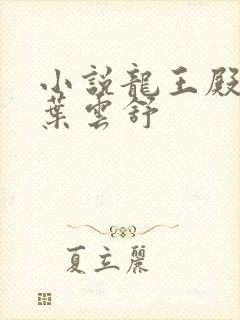 小説龍王殿
葉雲舒
夏立麗